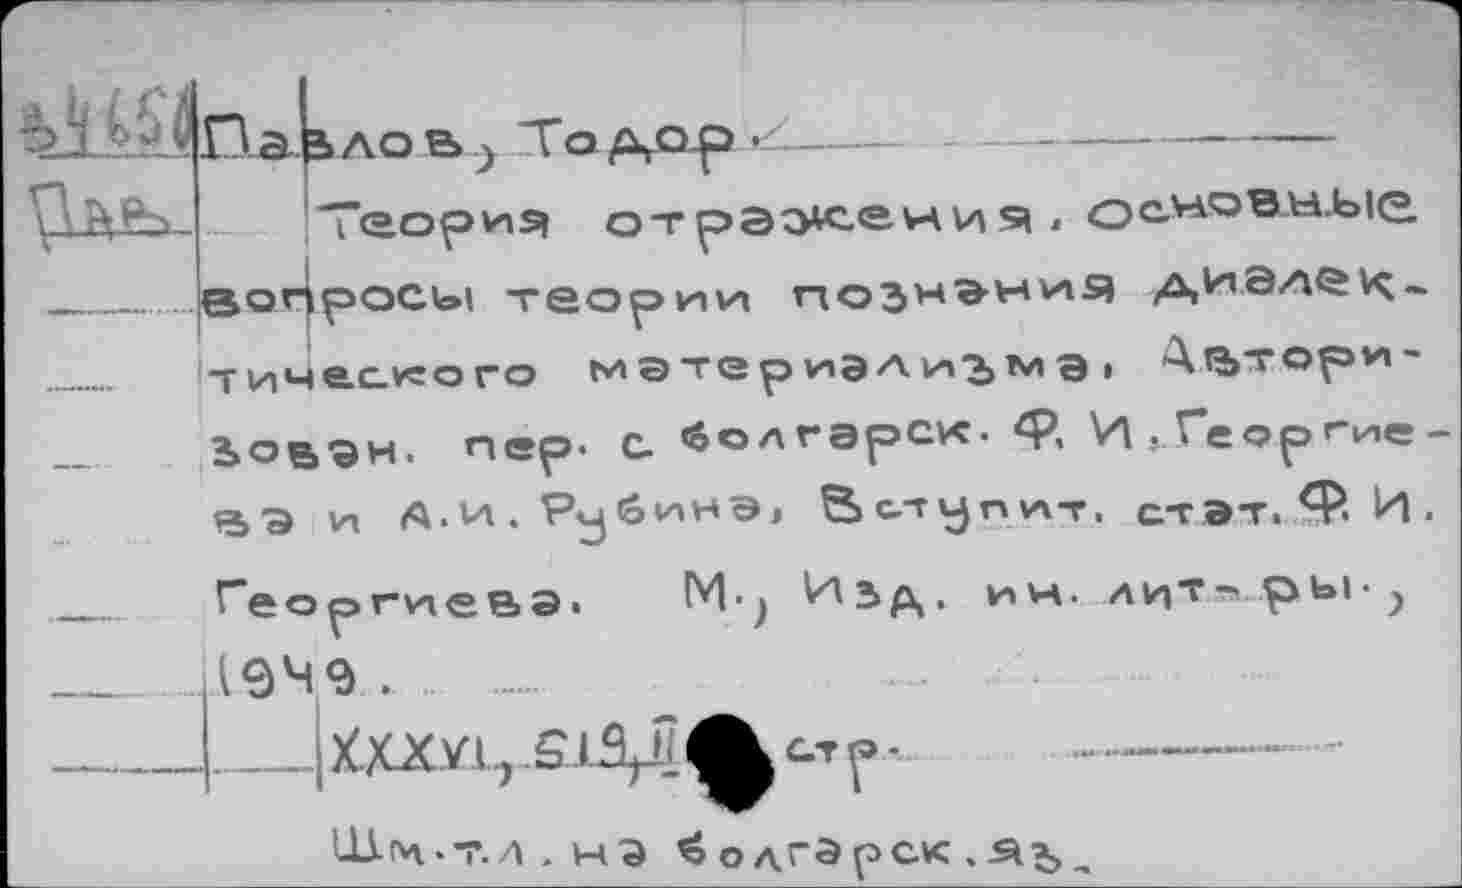 Павлов, Тодор.
Пав
Теория отражения. Основные
вопросы теории познания диалек-
тического материализма. Автори-
зован. пер. с болгарск. Ф. И. Георгие-
ва и А.И. Рубина, Вступит. стат. Ф. И.
Георгиева. М., Изд. ин. лит-ры.,
1949.
XXXVI, 519, II стр.
Шм.т.л. на болгарск. яз.